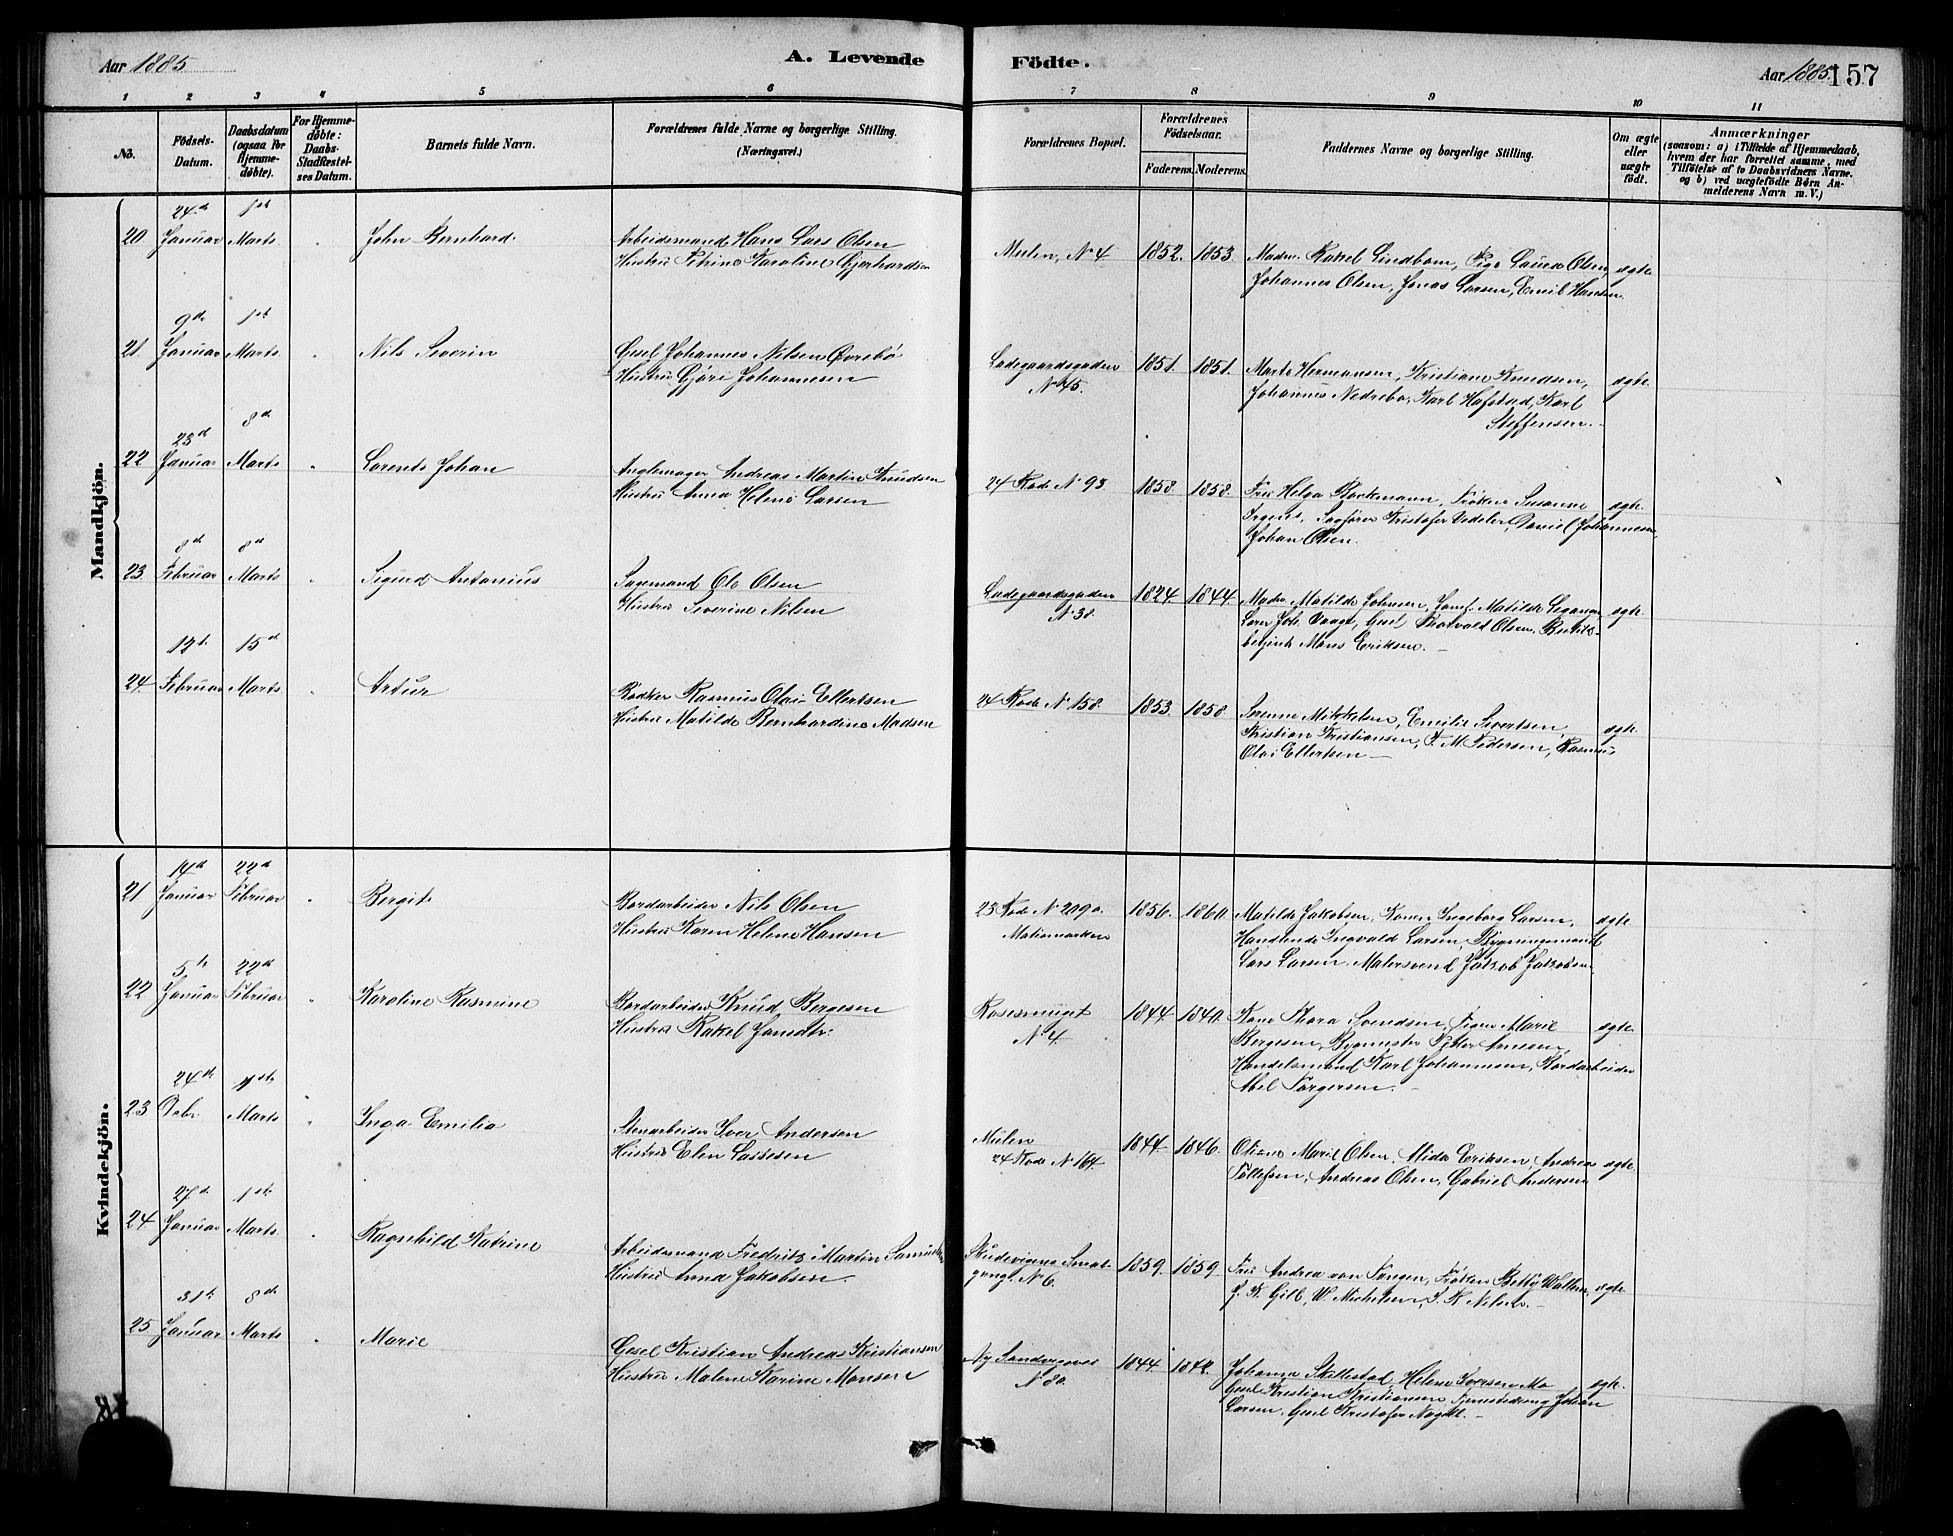 Aar 1885
A. Levende
Födte.
Aar 1885.
157
1 2 3 4 5 6 7 8 9 10 11
No.
Födsels-Datum.
Daabsdatum (ogsaa for Hjemme-döbte).
For Hjemme-döbte: Daabs-Stadfæstel-ses Datum.
Barnets fulde Navn.
Forældrenes fulde Navne og borgerlige Stilling.
(Næringsvei.)
Forældrenes Bopæl.
Forældrenes Födselsaar.
Faderens. Moderens.
Faddernes Navne og borgerlige Stilling.
Om ægte eller uægte födt.
Anmærkninger
(saasom: a) i Tilfælde af Hjemmedaab, hvem der har forrettet samme, med Tilföielse af to Daabsvidners Navne. og b) ved uægtefödte Börn An-melderens Navn m.V.)
Mandkjön.
20 24de Januar 1ste Marts " John Bernhard.
Arbeidsmand Hans Lars Olsen
Hustru Petrine Karoline Gjerhardsen
Mulen, No 4 1852. 1853.
Madm. Rakel Lindbom, Pige Laura Olsen,
Johannes Olsen, Jonas Larsen, Emil Hansen
ægte
21. 9de Januar 1ste Marts " Nils Severin
Gesel Johannes Nilsen Øvrebö
Hustru Gjöri Johannesen
Ladegaardsgaden
No 45.
1851. 1851.
Marta Hermansen, Kristiane Knudsen,
Johannes Nedrebö, Karl Hafstad, Karl
Steffensen.
ægte.
22 23de Januar 8de Marts " Lorents Johan
Anglemager Andreas Martin Knudsen
Hustru Anna Helene Larsen
24 Rode No 93. 1858 1858.
Fru Helga Backmann, Fröken Susanne
Irgens, Sagförer Kristofer Vedeler, Daniel Johannesen,
Johan Olsen.
ægte.
23. 8de Februar 8de Marts " Sigurd Antonius
Sagmand Ole Olsen
Hustru Severine Nilsen
Ladegaardsgaden
No 38.
1824. 1844.
Madm. Matilde Johnsen, Jomf. Matilde Leganger
Joh. Vaagt, Gesel Thorvald Olsen,
Mons Eriksen.
ægte.
24. 12te Februar 15de Marts " Artur
Bödker Rasmus Olai Ellertsen
Hustru Matilde Bernhardine Madsen
24 Rode No 158. 1853. 1858.
Serenne Mikkelsen, Emilie Sivertsen,
Kristian Kristiansen, P. M. Pedersen, Rasmus
Olai Ellertsen
ægte.
Kvindekjön.
21 14de Januar 22de Februar " Bergit
Bordarbeider Nils Olsen
Hustru Karen Helene Hansen
23 Rode No 209a.
1856. 1860.
Matilde Jakobsen, Konen Ingeborg Larsen,
Handlende Ingvald Larsen, Bygningsmand
Lars Larsen, Malersvend Jakob Jakobsen
ægte.
22 5te Januar 22de Februar " Karoline Rasmine
Bordarbeider Knud Bergesen
Hustru Rakel Jansdtr.
Rosesmuget
No 4.
1844. 1840.
Kone Thora Svendsen, Pigen Marie
Bergesen, Bygmester Peter Arnesen,
Handelsmand Karl Johannesen, Bordarbeider
Abel Torgersen.
ægte.
23 24de Debr 1ste Marts " Inga Emilia
Stenarbeider Iver Andersen
Hustru Elen Lassesen
Mulen
24 Rode No 164.
1844. 1846.
Oline Marie Olsen, Alida Eriksen, Andrea
Tollefsen, Andreas Olsen, Gabriel Andersen
ægte.
24 27de Januar 1ste Marts " Ragnhild Katrine
Arbeidsmand Fredrik Martin
Hustru Anna Jakobsen.
Skudevigens Smal-
gangt No 6.
1859. 1859.
Fru Andrea van Fangen, Fröken Betty Walter,
W. Michelsen, Nilsen.
ægte.
25 31te Januar 8de Marts " Marie
Gesel Kristian Andreas Kristiansen
Hustru Malene Karine Monsen
Ny Sandvigsvei
No 80.
1844. 1842.
Johanna Skillestad, Helene Iversen Mo
Gesel Kristian Kristiansen, Johan
Larsen, Gesel Kristofer
ægte.